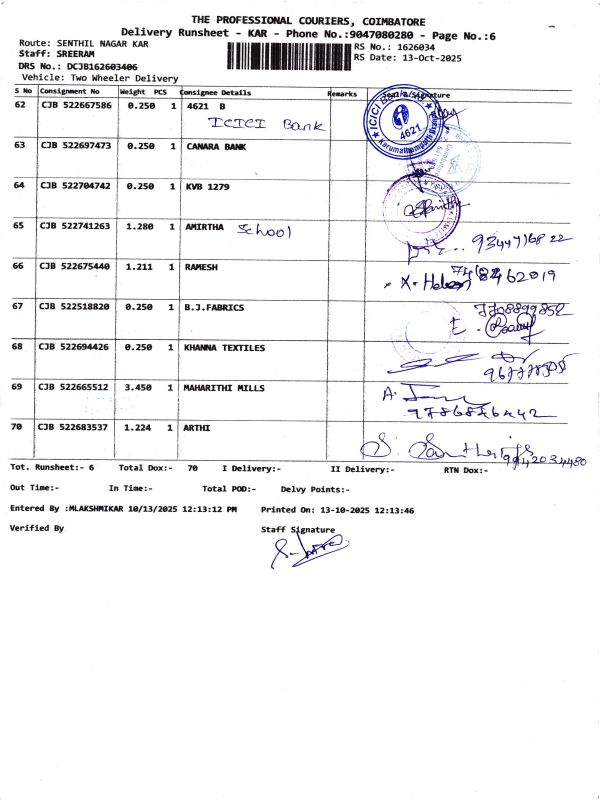 THE PROFESSIONAL COURIERS, COIMBATORE
Delivery Runsheet - KAR - Phone No.:9047080280 - Page No.:6
Route: SENTHIL NAGAR KAR RS No.: 1626034
Staff: SREERAM RS Date: 13-Oct-2025
DRS No.: DCJB162603406
Vehicle: Two Wheeler Delivery
S No Consignment No Weight PCS Consignee Details Remarks Seal & Signature
62 CJB 522667586 0.250 1 4621 B
ICICI Bank
ICICI Bank
4621
Karumathampatti Branch
63 CJB 522697473 0.250 1 CANARA BANK
64 CJB 522704742 0.250 1 KVB 1279
65 CJB 522741263 1.280 1 AMIRTHA School
66 CJB 522675440 1.211 1 RAMESH
67 CJB 522518820 0.250 1 B.J.FABRICS
7708899852
68 CJB 522694426 0.250 1 KHANNA TEXTILES
69 CJB 522665512 3.450 1 MAHARITHI MILLS
70 CJB 522683537 1.224 1 ARTHI
Tot. Runsheet:- 6 Total Dox:- 70 I Delivery:- II Delivery:- RTN Dox:-
Out Time:- In Time:- Total POD:- Delvy Points:-
Entered By :MLAKSHMIKAR 10/13/2025 12:13:12 PM Printed On: 13-10-2025 12:13:46
Verified By Staff Signature